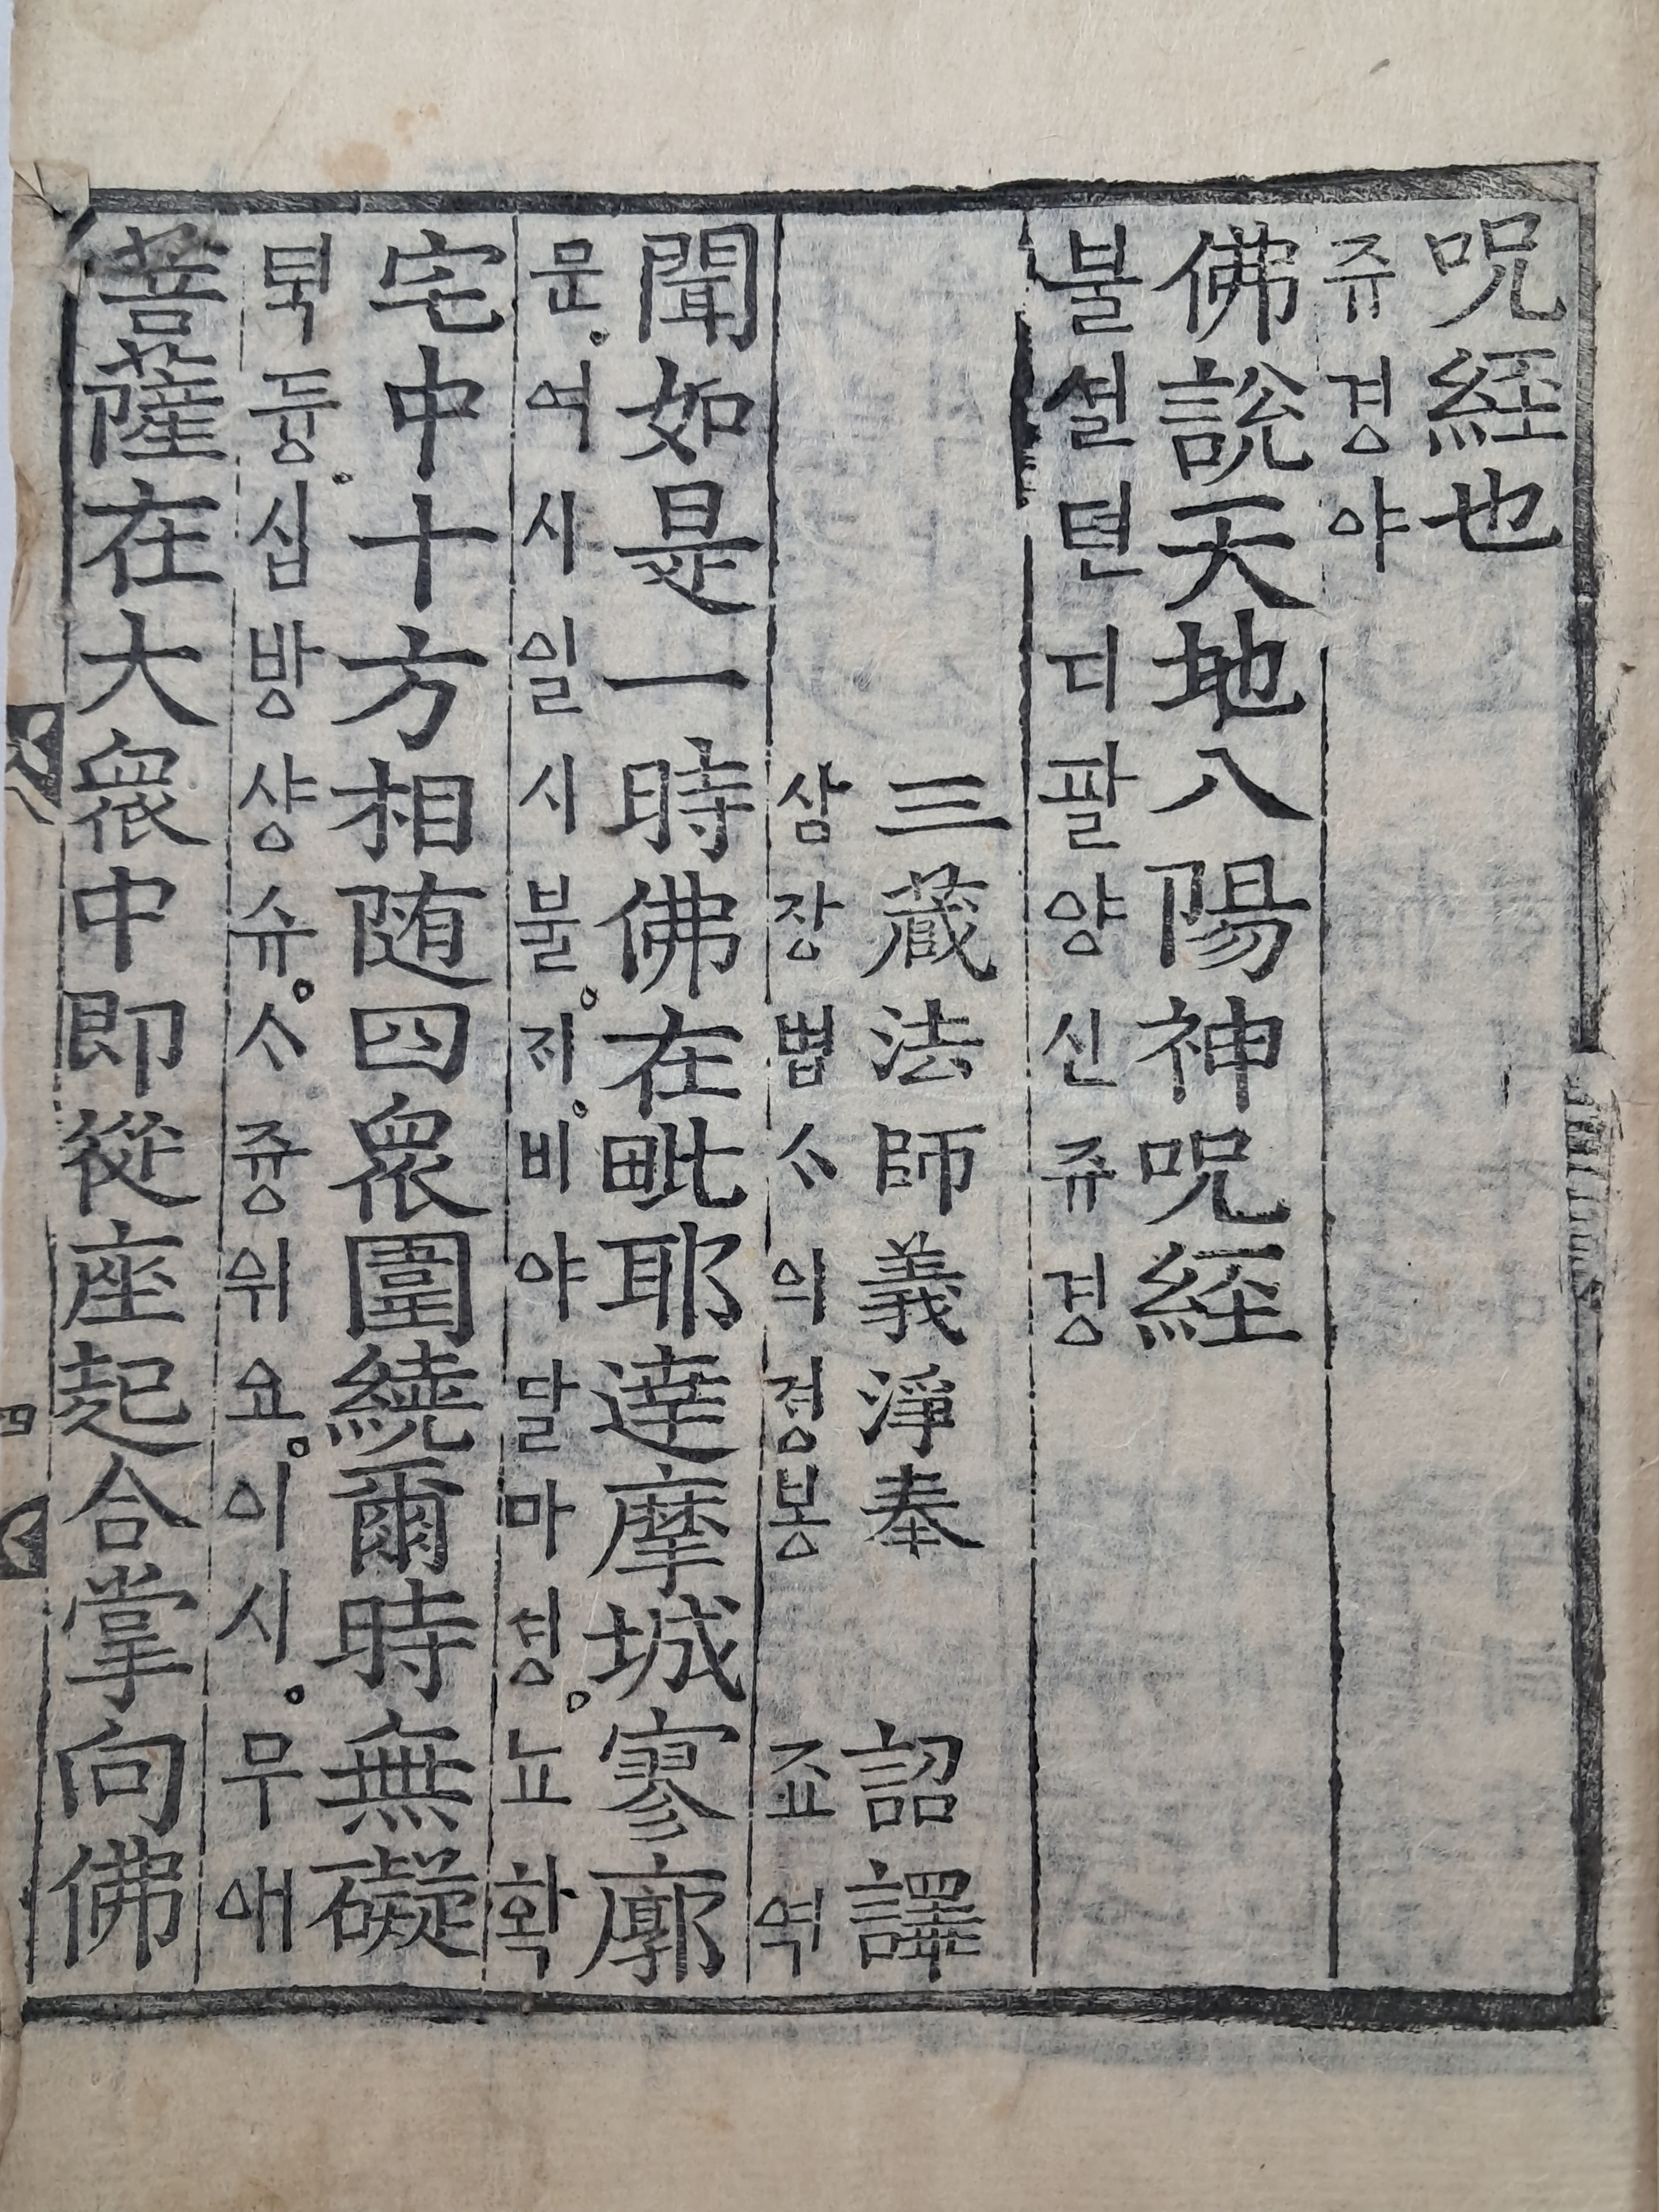 呪経也
쥬경야
佛說天地八陽神呪経
불셜텬디팔양신쥬경
三蔵法師義淨奉 詔譯
삼장법ᄉ의졍봉 죠역
聞如是一時佛在毗耶達摩城寥廓
문여시일시불ᄌᆡ비야달마셩뇨확
宅中十方相随四衆圍繞爾時無礙
ᄐᆡᆨ듕십방샹슈ᄉ즁위요이시무애
菩薩在大衆中即從座起合掌向佛
四